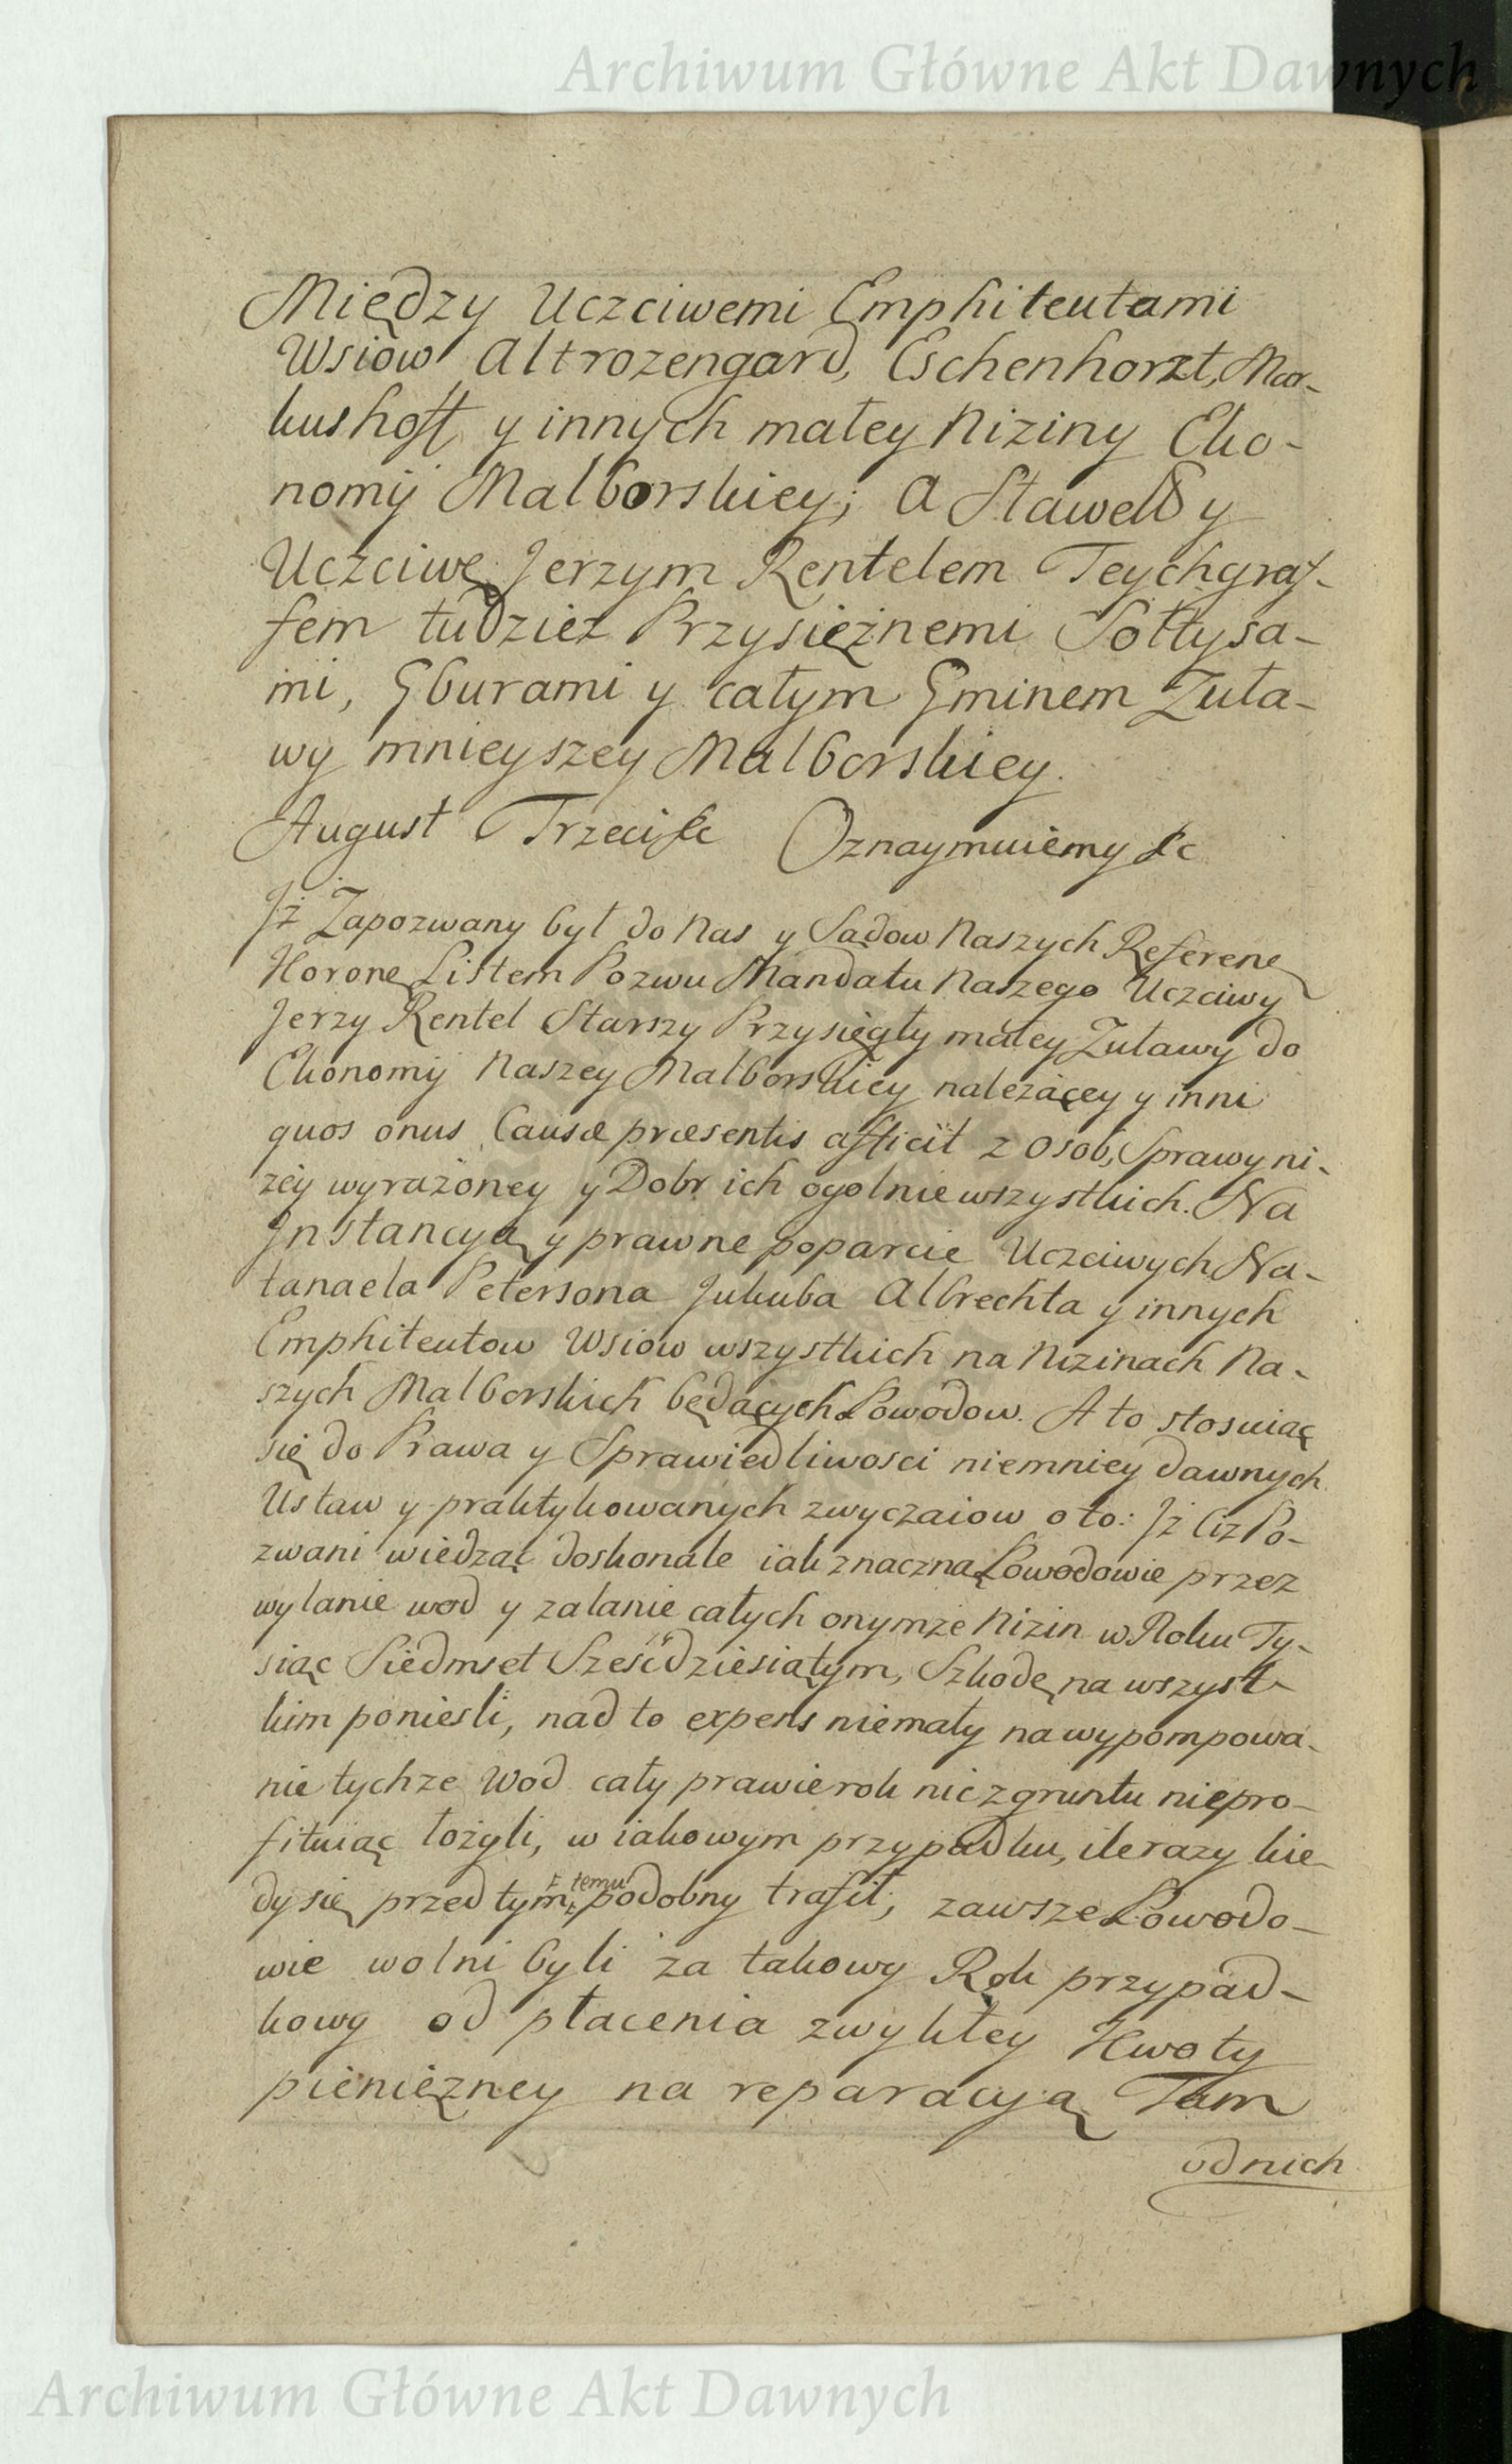 Archiwum Główne Akt Dawnych
Między Uczciwemi Emphiteutami
Wsiow Altrozengard, Eschenhorzt, Mar-
kushoff y innych małey Niziny Eko-
nomij Malborskiey; A Sławetd y
Uczciwę Jerzym Rentelem Teychgraf-
fem tudziez Przysiężnemi Sołtysa-
mi, Gburami y całym Gminem Zuła-
wy mnieyszey Malborskiey.
August Trzeci &c Oznaymuiemy &c
Jż Zapozwany był do Nas y Sądow Naszych Referene
Korone Listem Pozwu Mandatu Naszego Uczciwy
Jerzy Rentel Starszy Przysięgły małey Zuławy do
Ekonomij Naszey Malborskiey należącey y inni
quos onus Causæ præsentis afficit z Osob, Sprawy ni-
żey wyrażoney y Dobr ich ogolnie wszystkich. Na
Jnstancyą y prawne poparcie Uczciwych Na-
tanaela Petersona Jakuba Albrechta y innych
Emphiteutow Wsiow wszystkich na Nizinach Na-
szych Malborskich będących Powodow. A to stosuiąc
się do Prawa y Sprawiedliwosci niemniey dawnych
Ustaw y praktykowanych zwyczaiow o to: Jż Ciż Po-
zwani wiedząc doskonale iak znaczną Powodowie przez
wylanie wod y zalanie całych onymże Nizin w Roku Ty-
siąc Siedmset Sześćdziesiątym, Szkodę na wszyst-
kim poniesli, nad to expens niemały na wypompowa-
nie tychze Wod cały prawie rok nic z gruntu niepro-
fituiąc łożyli, w iakowym przypadku, ile razy kie-
dy się przed tym temu podobny trafił; zawsze Powodo-
wie wolni byli za takowy Rok przypad-
kowy od płacenia zwykłey Kwoty
pieniężney na reparacyą Tam
od nich
Archiwum Główne Akt Dawnych